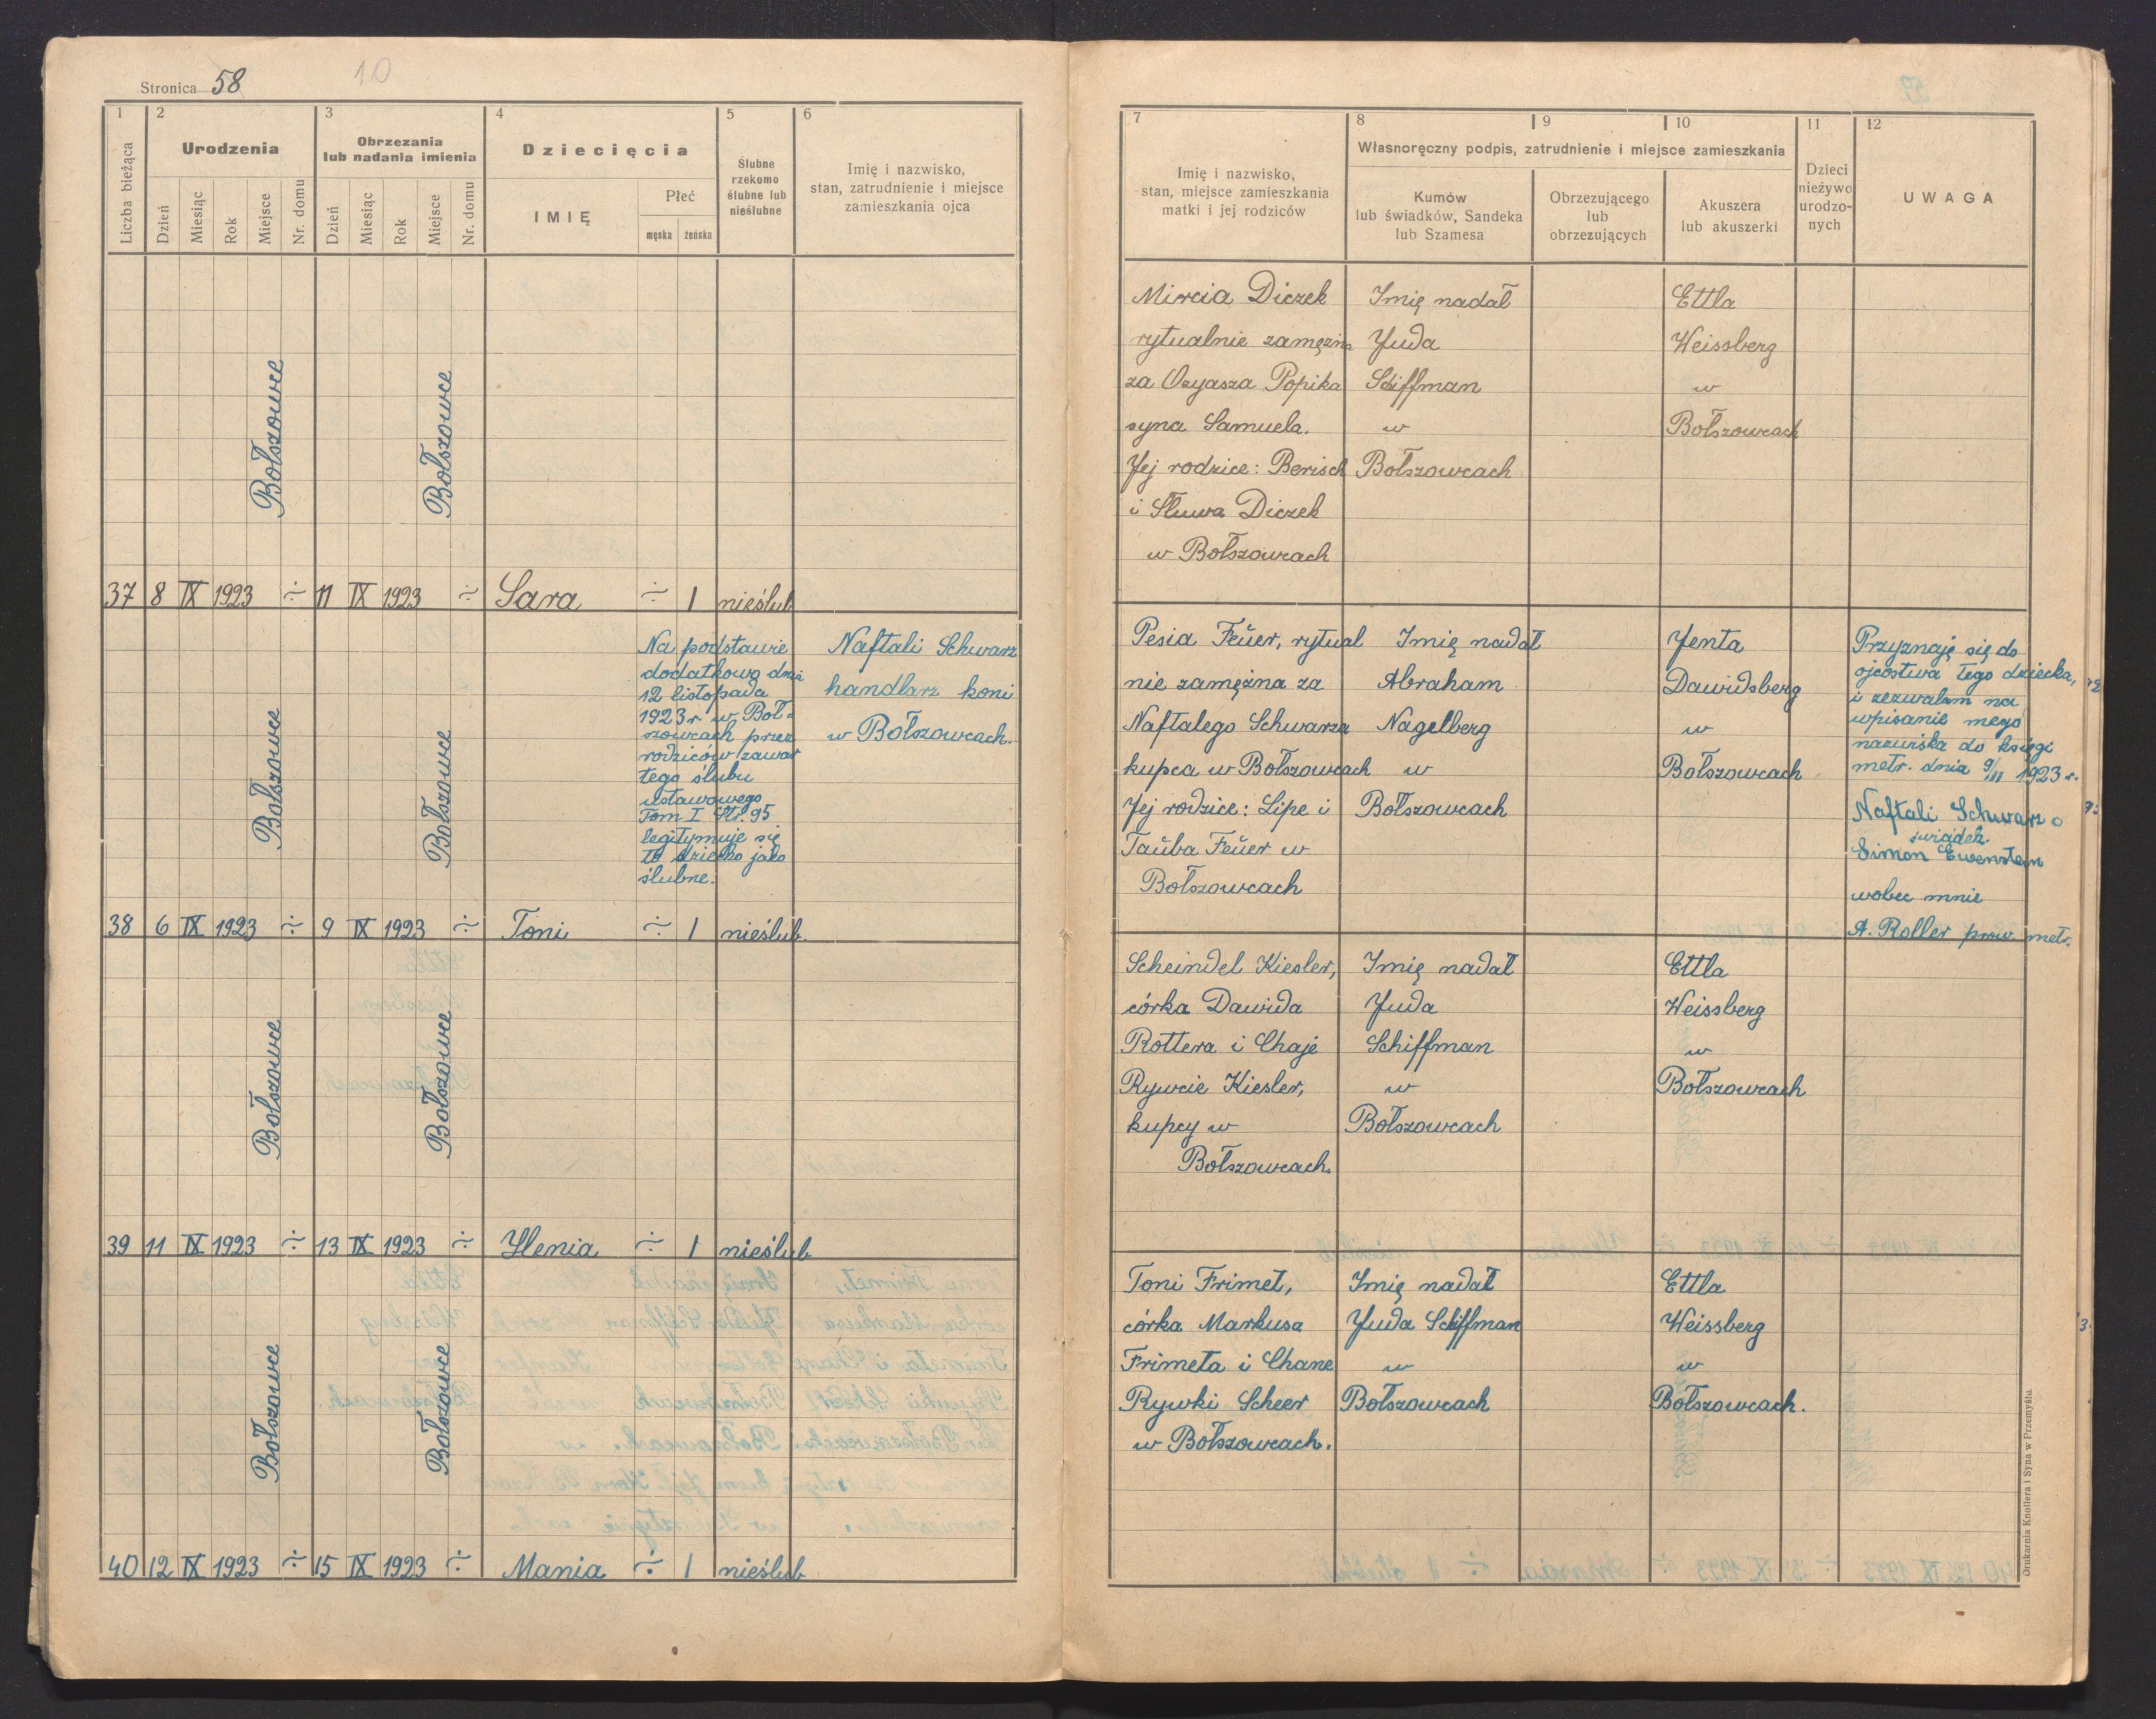 Stronica 58
10
1
2
3
4
5
6
Liczba bieżąca
Urodzenia
Obrzezania
lub nadania imienia
Dziecięcia
Ślubne
rzekomo
ślubne lub
nieślubne
Imię i nazwisko,
stan, zatrudnienie i miejsce
zamieszkania ojca
Dzień
Miesiąc
Rok
Miejsce
Nr. domu
Dzień
Miesiąc
Rok
Miejsce
Nr. domu
IMIĘ
Płeć
męska
żeńska
Bołszowce
Bołszowce
37 8 IX 1923 ÷ 11 IX 1923 ÷ Sara ÷ 1 nieślub
Na podstawie
dodatkowo dnia
12 listopada
1923 r. w Boł-
szowcach przez
rodziców zawar
tego ślubu
ustawowego
Tom I Str. 95
legitymuje się
to dziecko jako
ślubne.
Naftali Schwarz
handlarz koni
w Bołszowcach.
Bołszowce
Bołszowce
38 6 IX 1923 ÷ 9 IX 1923 ÷ Toni ÷ 1 nieślub.
Bołszowce
Bołszowce
39 11 IX 1923 ÷ 13 IX 1923 ÷ Henia ÷ 1 nieślub
Bołszowce
Bołszowce
40 12 IX 1923 ÷ 15 IX 1923 ÷ Mania ÷ 1 nieślub
7
8
9
10
11
12
Imię i nazwisko,
stan, miejsce zamieszkania
matki i jej rodziców
Własnoręczny podpis, zatrudnienie i miejsce zamieszkania
Kumów
lub świadków, Sandeka
lub Szamesa
Obrzezującego
lub
obrzezujących
Akuszera
lub akuszerki
Dzieci
nieżywo
urodzo-
nych
UWAGA
Mircia Diczek
rytualnie zamężna
za Ozyasza Popika
syna Samuela.
Jej rodzice: Berisch
i Sluwa Diczek
w Bołszowcach
Imię nadał
Juda
Schiffman
w
Bołszowcach
Ettla
Weissberg
w
Bołszowcach
Pesia Feuer, rytual
nie zamężna za
Naftalego Schwarza
kupca w Bołszowcach
Jej rodzice: Lipe i
Tauba Feuer w
Bołszowcach
Imię nadał
Abraham
Nagelberg
w
Bołszowcach
Jenta
Dawidsberg
w
Bołszowcach
Przyznaję się do
ojcostwa tego dziecka,
i zezwalam na
wpisanie mego
nazwiska do księgi
metr. dnia 9/11 1923 r.
Naftali Schwarz
świadek.
Simon Ewenstein
wobec mnie
A. Roller prow. metr.
Scheindel Kiesler,
córka Dawida
Rottera i Chaje
Rywcie Kiesler,
kupcy w
Bołszowcach.
Imię nadał
Juda
Schiffman
w
Bołszowcach
Ettla
Weissberg
w
Bołszowcach
Toni Frimet,
córka Markusa
Frimeta i Chane
Rywki Scheer
w Bołszowcach.
Imię nadał
Juda Schiffman
w
Bołszowcach
Ettla
Weissberg
w
Bołszowcach.
Drukarnia Knollera i Syna w Przemyślu